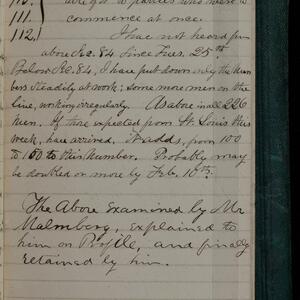 110.
111. commence at once.
112. I have not heard from
above Sec. 84 since Tues. 25th.
Below Sec. 84, I have put down only the num-
bers steadily at work; some more men on the
line, working irregularly. As above in all 286
men. If those expected from St. Louis this
week, have arrived, it adds, from 100
to 150 to this number. Probably may
be doubled or more by Feb. 10th.
The Above Examined by Mr
Malmberg, explained to
him on Profile, and finally
retained by him.